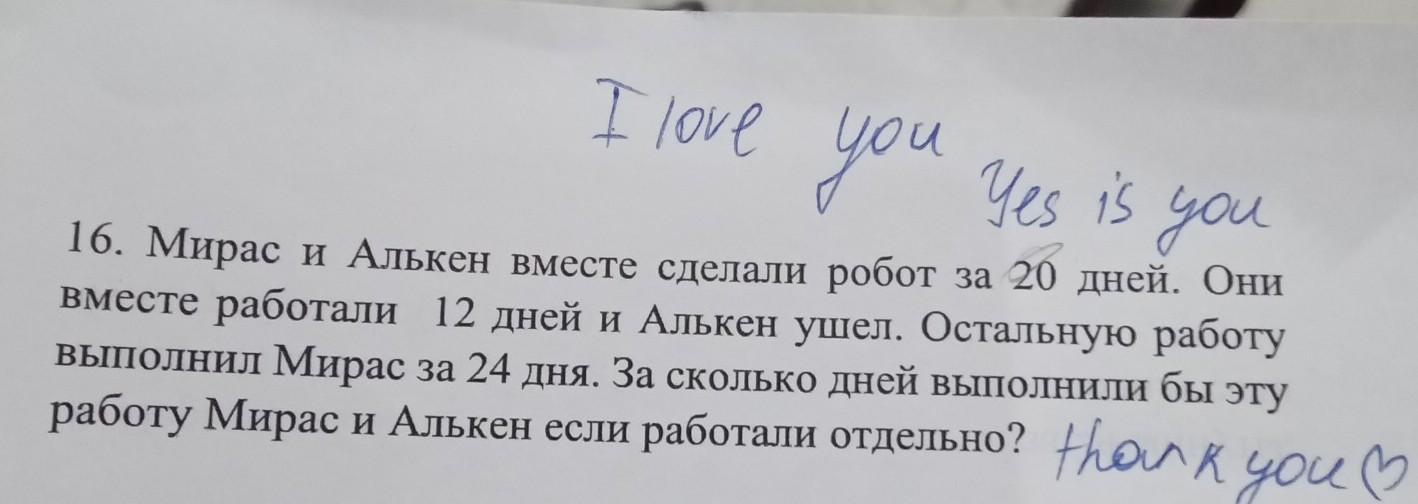 I love you
Yes is you
16. Мирас и Алькен вместе сделали робот за 20 дней. Они
вместе работали 12 дней и Алькен ушел. Остальную работу
выполнил Мирас за 24 дня. За сколько дней выполнили бы эту
работу Мирас и Алькен если работали отдельно?
thank you